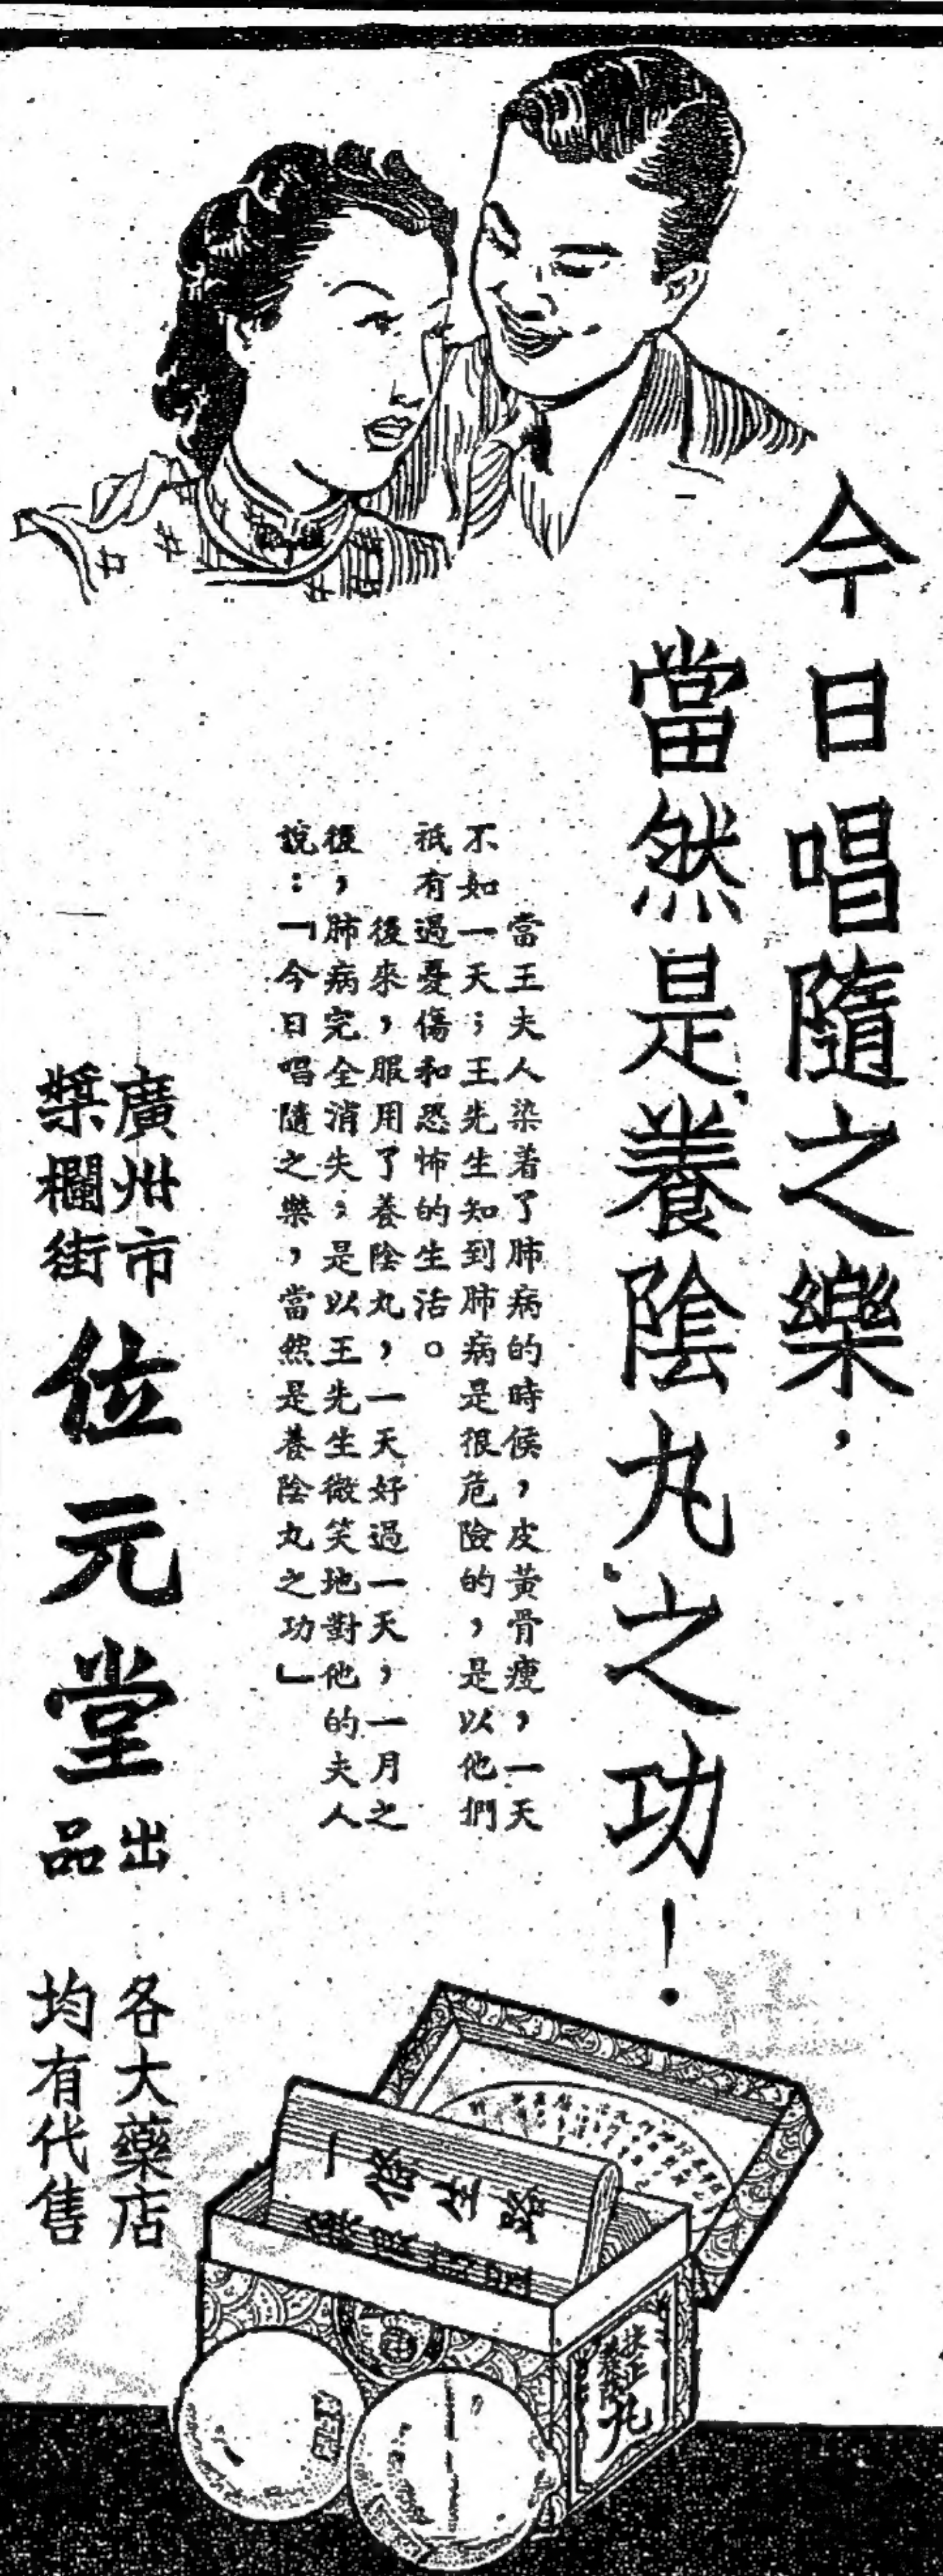 今日唱隨之樂，
當然是養陰丸之功！
當王夫人染着了肺病的時候，皮黃骨瘦，一天
不如一天；王先生知到肺病是很危險的，是以他們
祇有過憂傷和恐怖的生活。
後來，服用了養陰丸，一天好過一天，一月之
後，肺病完全消失，是以王先生微笑地對他的夫人
說：「今日唱隨之樂，當然是養陰丸之功」
廣州市
槳欄街
位元堂
出
品
各大藥店
均有代售
扶正
養陰
丸